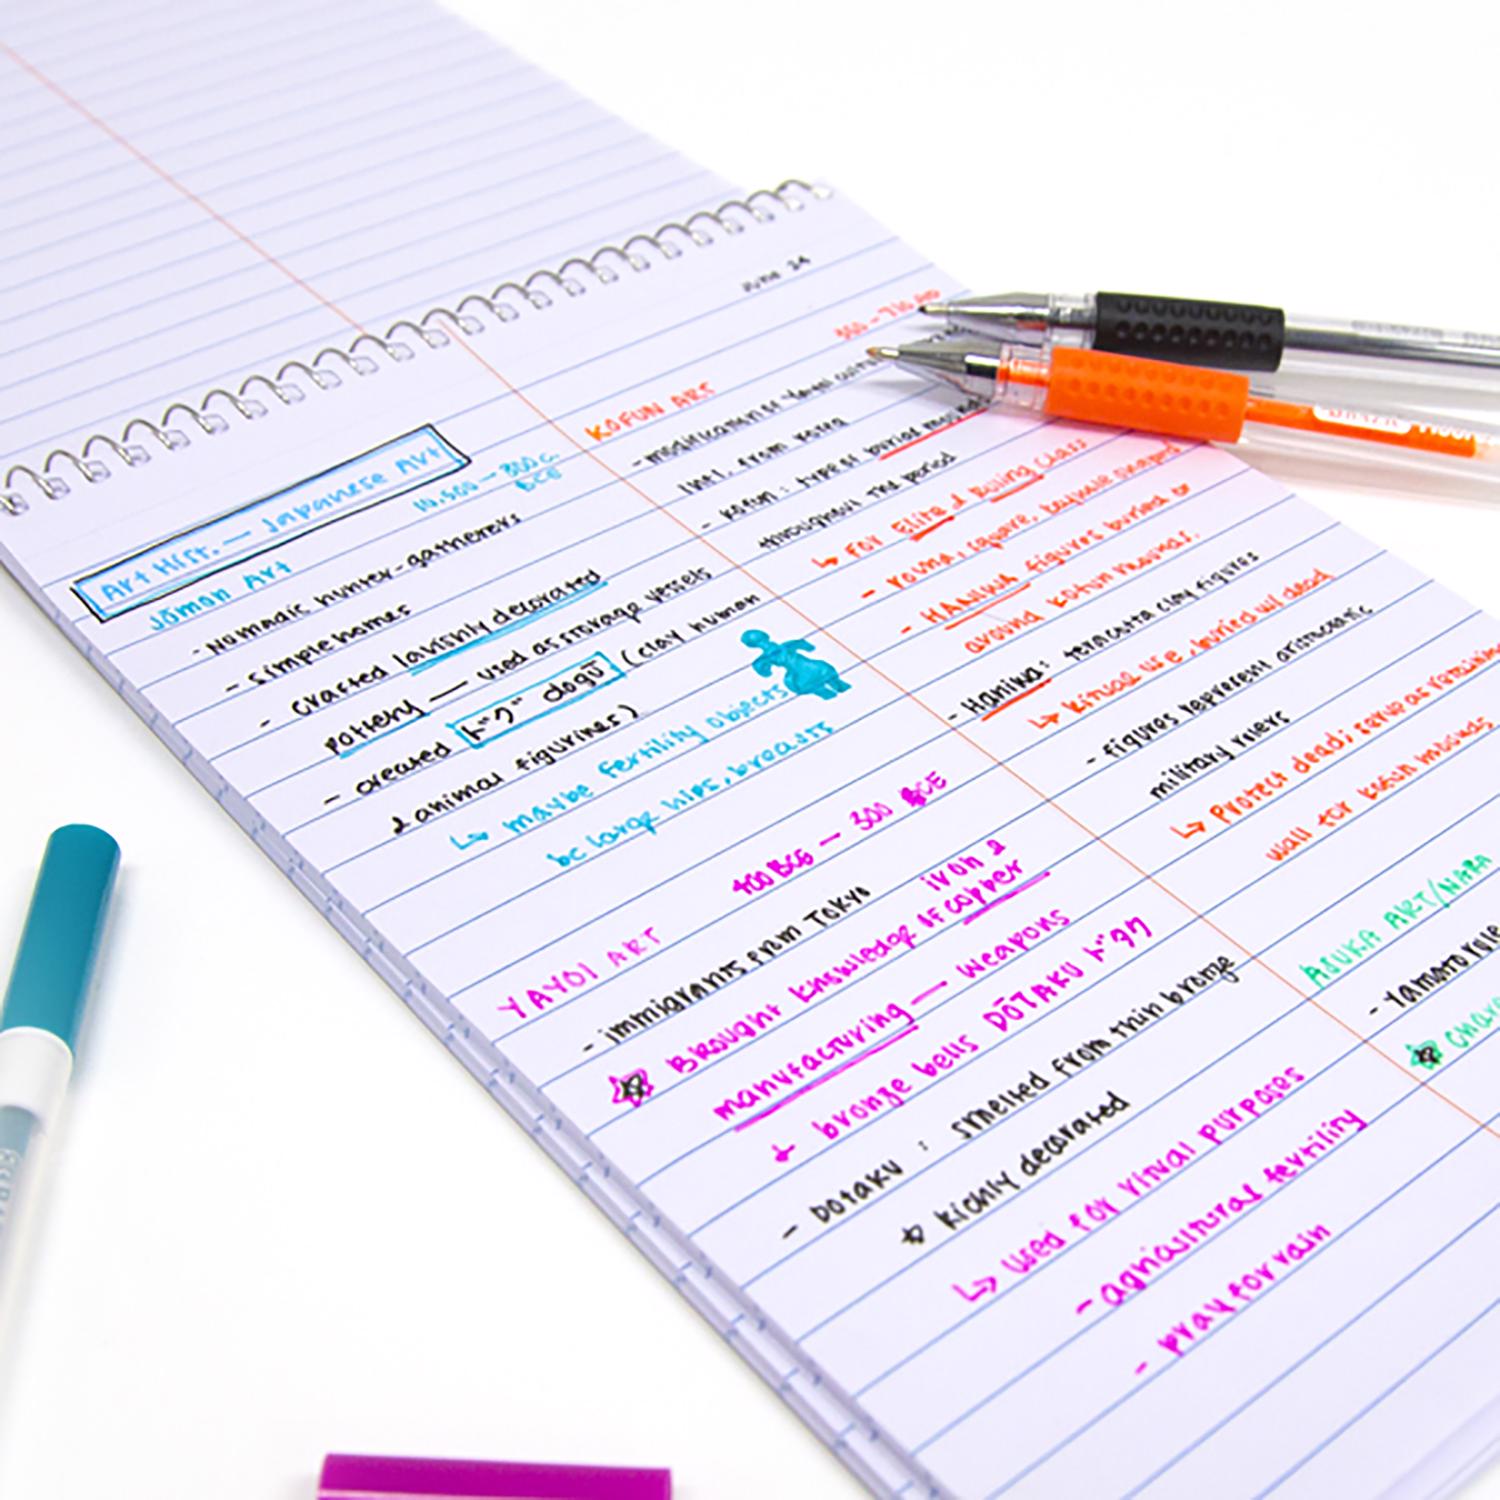 June 24
Art Hist. — Japanese Art
10,500 — 300 c.
BCE
Jōman Art
- Nomadic hunter-gatherers
- simple homes
- crafted lavishly decorated
pottery — used as storage vessels
- created ド"グ" dogū (clay human
& animal figurines)
↳ maybe fertility objects
bc large hips, breasts
400 BCE — 300 BCE
YAYOI ART
- immigrants from Tokyo
iron &
☆ Brought knowledge of copper
manufacturing — weapons
& bronze bells DŌTAKU
- Dotaku : smelted from thin bronze
☆ Richly decorated
↳ used for ritual purposes
- agricultural fertility
- pray for rain
300 - 710 AD
KOFUN ART
- modification of Yayoi
Inf. from Korea
- Kofun : type of buried
throughout the period
↳ For Elite & Ruling Class
- round, square, keyhole shaped
- HANIWA figures buried or
around kofun mounds.
- Haniwa: terracotta clay figures
↳ Ritual use, buried w/ dead
- figures represent aristocratic
military rulers
↳ Protect dead; serve as retaining
wall for kofun mounds
ASUKA ART/NARA
- Yamato rule
☆